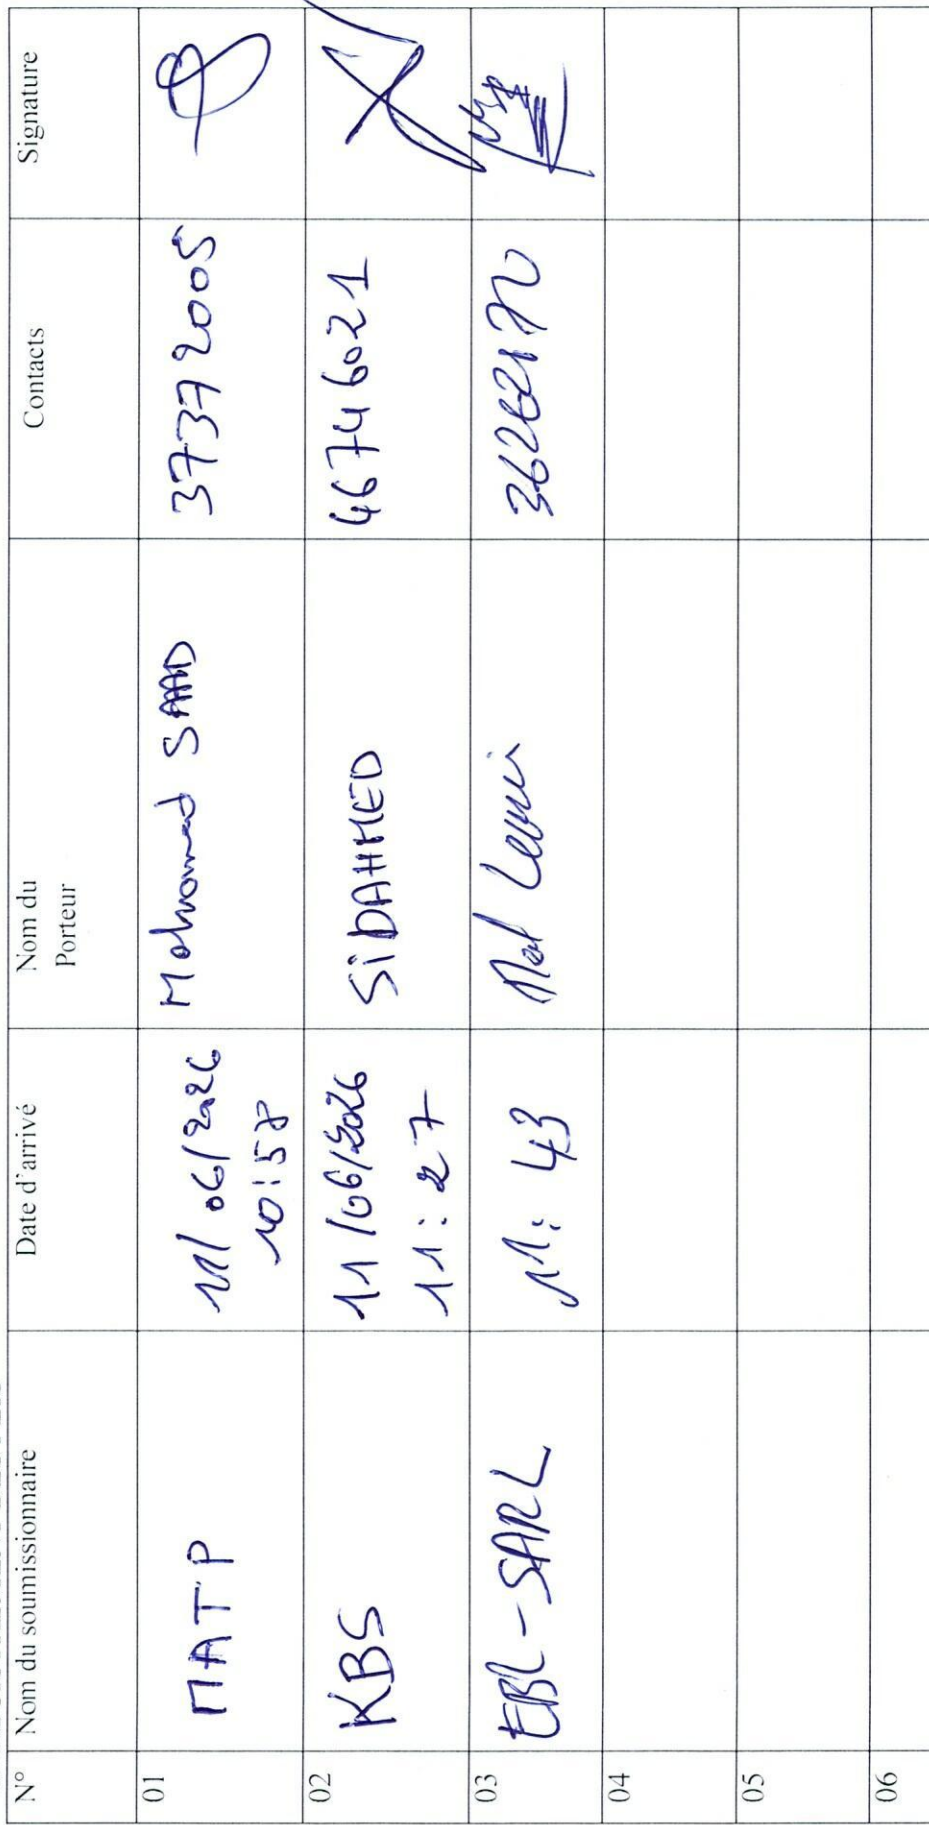 N° Nom du soumissionnaire Date d'arrivé Nom du Porteur Contacts Signature
01 MATP 11/06/2026 10:58 Mohamed SAAD 37372005
02 KBS 11/06/2026 11:27 SIDAHMED 46746021
03 EBL-SARL 11:43 36262170
04
05
06